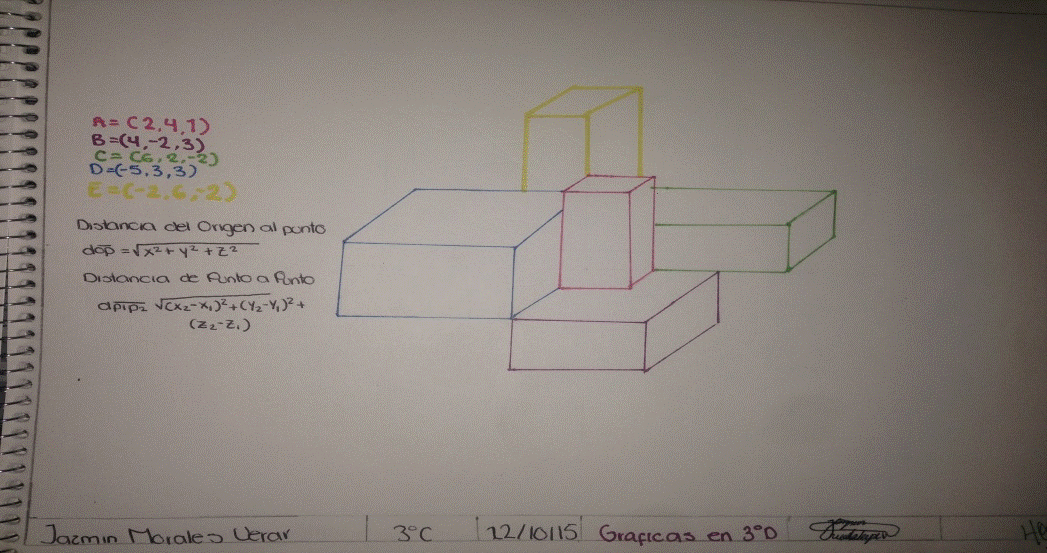 A= (2,4,1)
B=(4,-2,3)
C= (6, 2,-2)
D=(-5,3,3)
E=(-2,6,-2)
Distancia del Origen al punto
dop = √x²+y²+z²
Distancia de Punto a Punto
dp1p2 √(x₂-x₁)²+(y₂-y₁)²+
(z₂-z₁)
Jazmin Morales 3°C 12/10/15 Graficas en 3°D